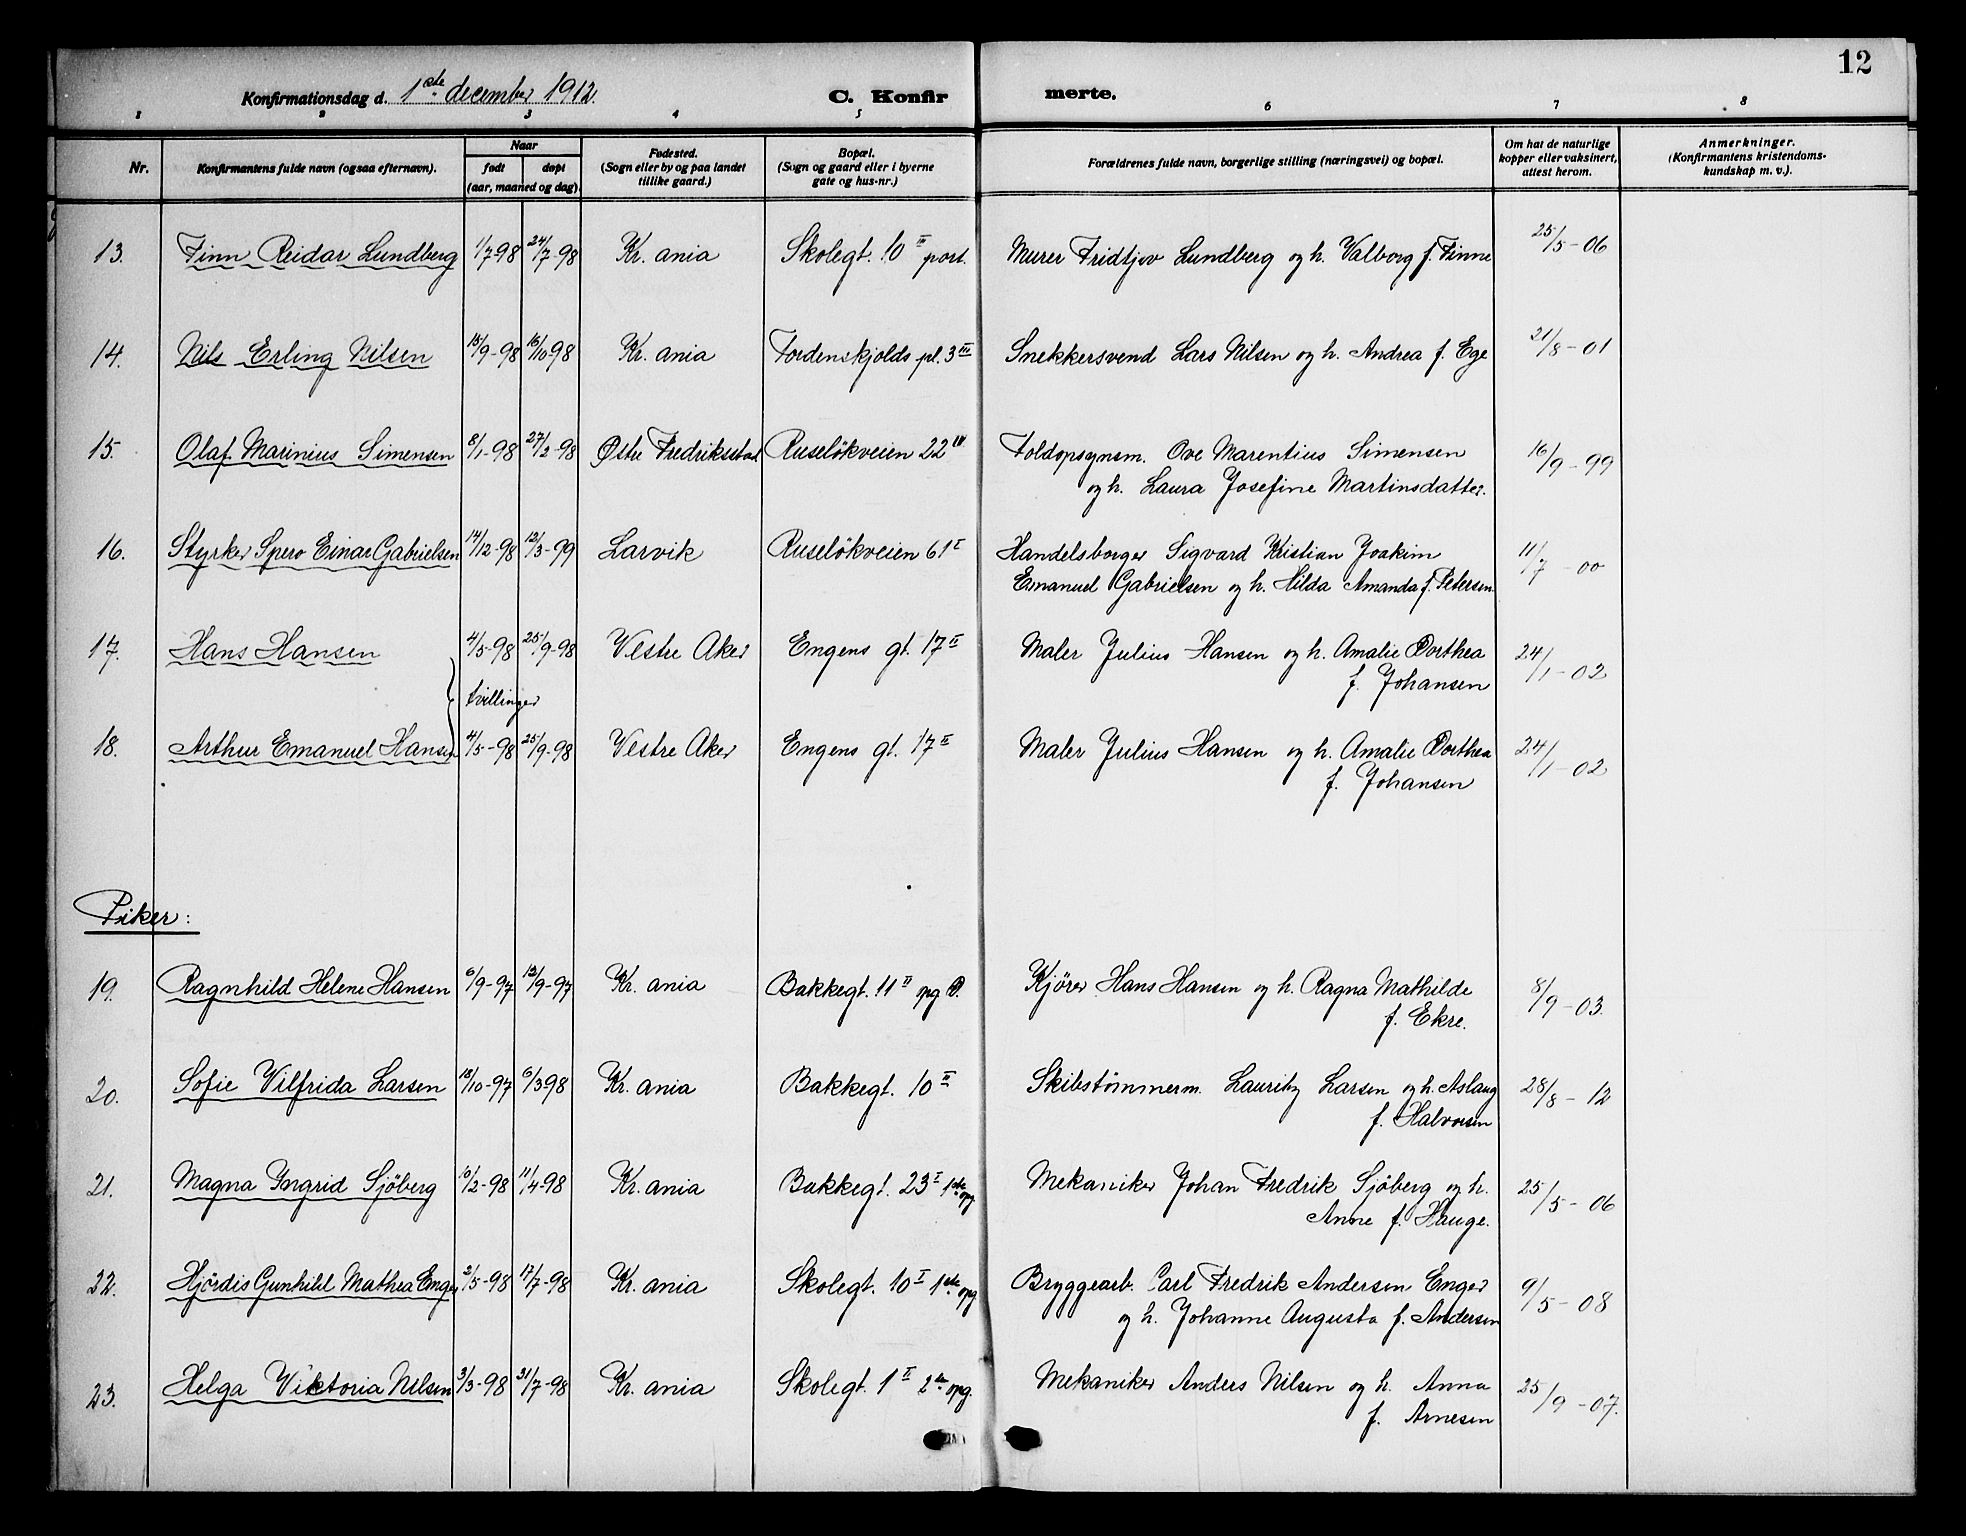 12
Konfirmationsdag d. 1ste december 1912. C. Konfirmerte.
1 2 3 4 5 6 7 8
Nr. Konfirmantens fulde navn (ogsaa efternavn). Naar født døpt (aar, maaned og dag). Fødested. (Sogn eller by og paa landet tillike gaard.) Bopæl. (Sogn og gaard eller i byerne gate og hus-nr.) Forældrenes fulde navn, borgerlige stilling (næringsvei) og bopæl. Om hat de naturlige kopper eller vaksinert, attest herom. Anmerkninger. (Konfirmantens kristendoms-kundskap m. v.).
13. Finn Reidar Lundberg 1/7-98 24/7-98 Kr. ania Skolegt. 10 III port. Murer Fridtjov Lundberg og h. Valborg f. Finne 25/5-06
14. Nils Erling Nilsen 18/9-98 16/10-98 Kr. ania Tordenskjolds pl. 3 III Snekkersvend Lars Nilsen og h. Andrea f. Ege 21/8-01
15. Olaf Marinius Simensen 8/1-98 27/2-98 Østre Fredriksstad Ruseløkveien 22 IV Toldopsynsm. Ove Marentius Simensen
og h. Laura Josefine Martinsdatter. 16/9-99
16. Styrker Spero Einar Gabrielsen 14/12-98 12/3-99 Larvik Ruseløkveien 61 I Handelsborger Sigvard Kristian Joakim
Emanuel Gabrielsen og h. Hilda Amanda f. Petersen. 11/7-00
17. Hans Hansen 4/5-98 25/9-98 Vestre Aker Engens gt. 17 II Maler Julius Hansen og h. Amalie Dorthea
f. Johansen 24/1-02
tvillinger
18. Arthur Emanuel Hansen 4/5-98 25/9-98 Vestre Aker Engens gt. 17 II Maler Julius Hansen og h. Amalie Dorthea
f. Johansen 24/1-02
Piker:
19. Ragnhild Helene Hansen 6/9-97 12/9-97 Kr. ania Bakkegt. 11 II opg Kjører Hans Hansen og h. Ragna Mathilde
f. Ekre. 8/9-03.
20. Sofie Vilfrida Larsen 18/10-97 6/3 98 Kr. ania Bakkegt. 10 II Skibstømmerm. Lauritz Larsen og h. Aslaug
f. Halvorsen 28/8-12
21. Magna Yngrid Sjöberg 10/2-98 11/4-98 Kr. ania Bakkegt. 23 I 1ste opg Mekaniker Johan Fredrik Sjöberg og h.
Anne f. Hauge. 25/5-06
22. Hjördis Gunhild Mathea Enger 2/5-98 17/7-98 Kr. ania Skolegt. 10 I 1ste opg Bryggearb. Carl Fredrik Andersen Enger
og h. Johanne Augusta f. Andersen 9/5-08
23. Helga Viktoria Nilsen 3/3-98 31/7-98 Kr. ania Skolegt. 1 II 2de opg. Mekaniker Anders Nilsen og h. Anna
f. Arnesen 25/9-07.